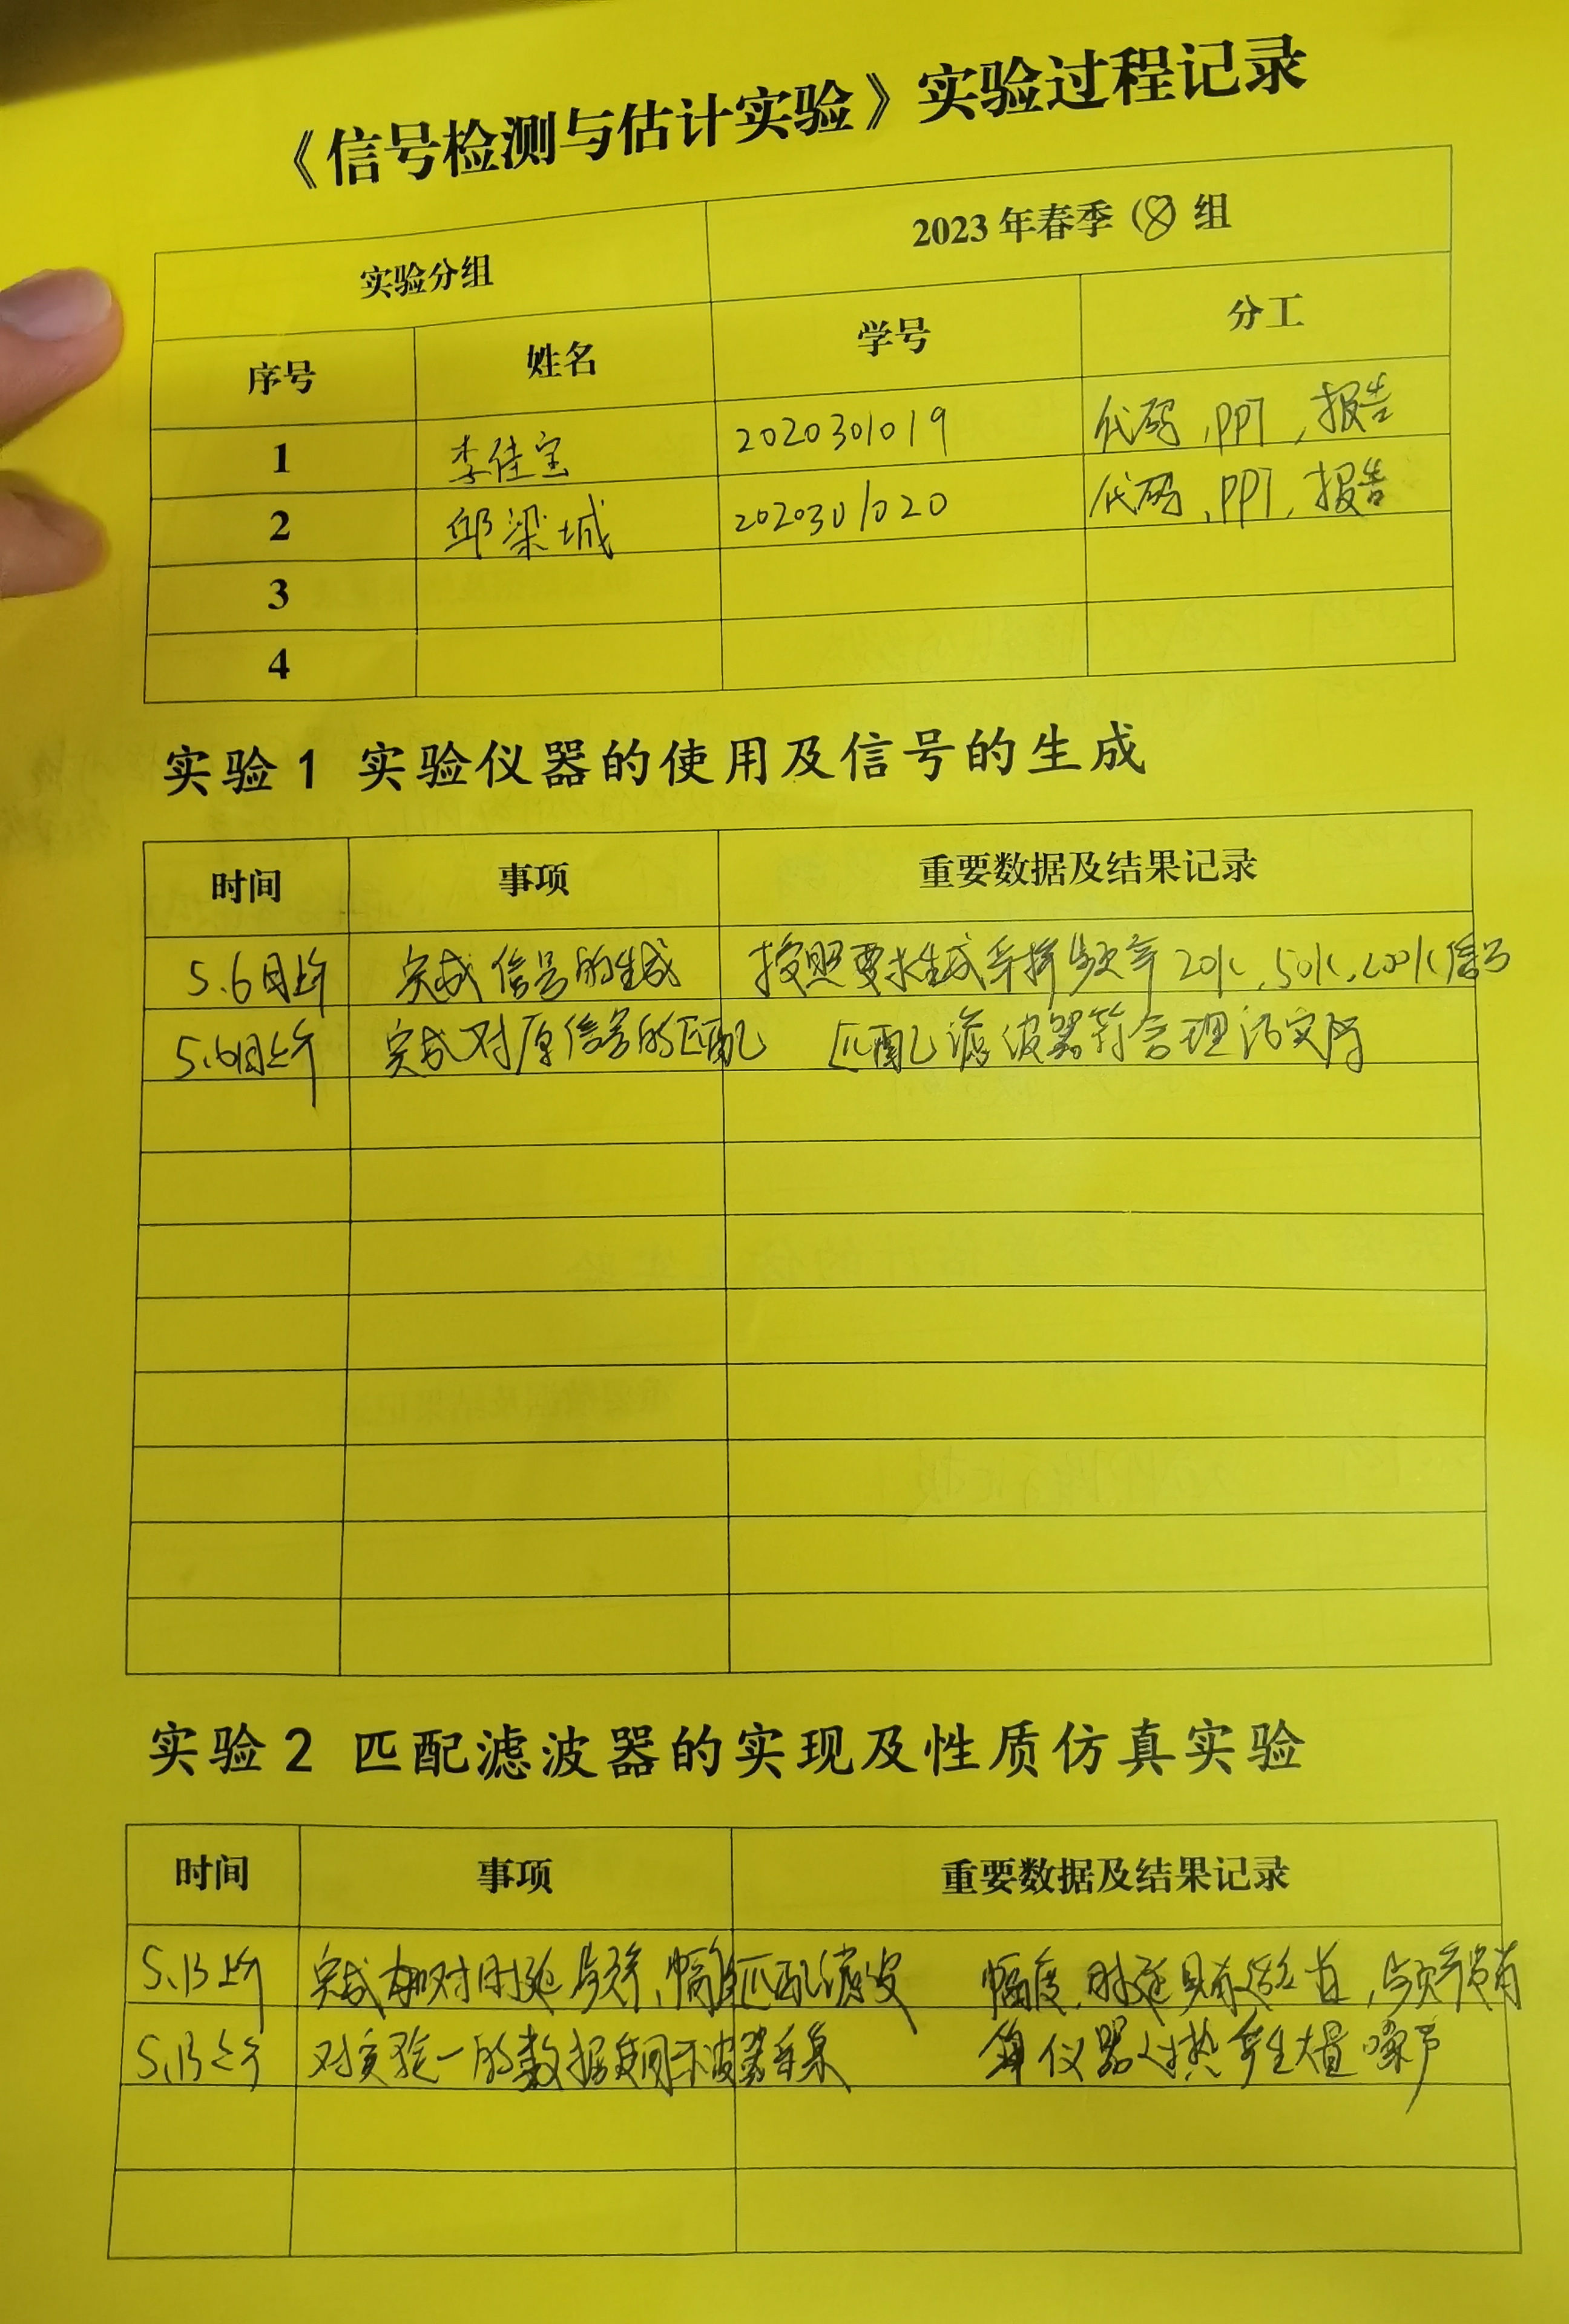 《信号检测与估计实验》实验过程记录
实验分组 2023年春季（8）组
序号 姓名 学号 分工
1 李佳宝 2020301019 代码、PPT、报告
2 邱梁城 2020301020 代码、PPT、报告
3
4
实验1 实验仪器的使用及信号的生成
时间 事项 重要数据及结果记录
5.6日上午 完成信号的生成 按照要求生成采样频率20k、50k、200k信号
5.6日上午 完成对原信号的匹配 匹配滤波器符合理论实际
实验2 匹配滤波器的实现及性质仿真实验
时间 事项 重要数据及结果记录
5.13上午 完成 对时延、频率、幅度匹配滤波 幅度、时延具有适应性,频率没有
5.13上午 对实验一的数据使用示波器采集 仪器过热产生大量噪声